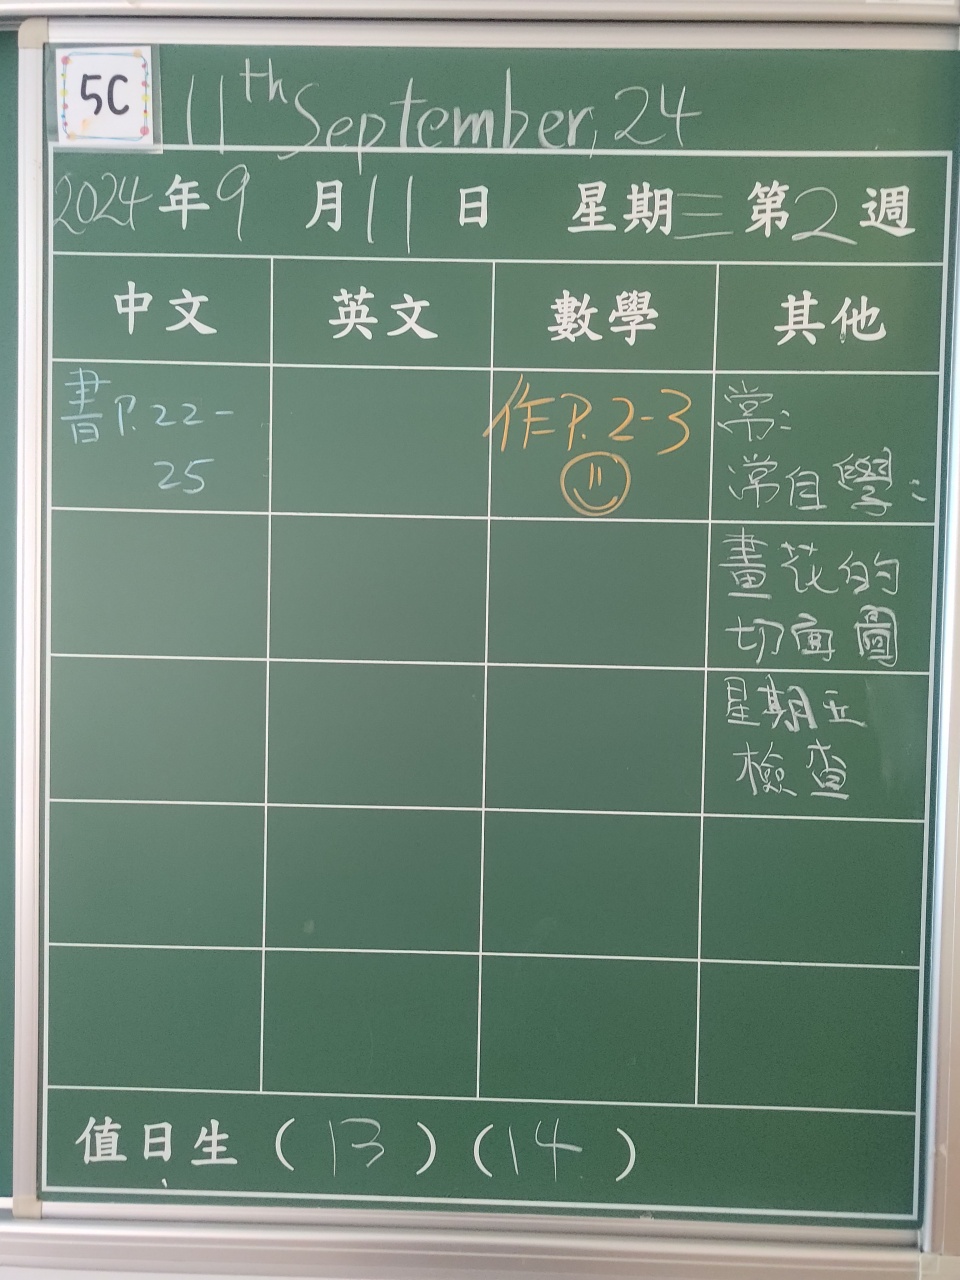 5C
11th September, 24
2024年9月11日 星期三第2週
中文 英文 數學 其他
書P.22-
25
作P.2-3
常:
常自學:
畫花的
切面圖
星期五
檢查
值日生(13)(14)